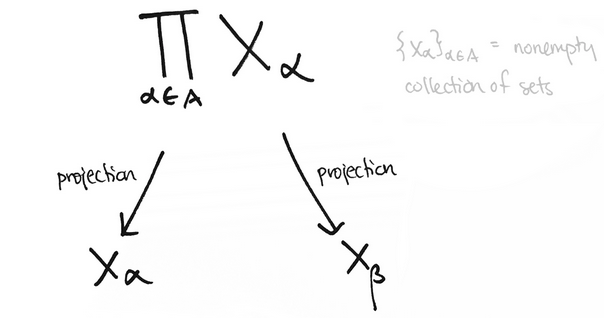 ∏ Xα
α∈A
{Xα}α∈A = nonempty
collection of sets
projection
projection
Xα
Xβ